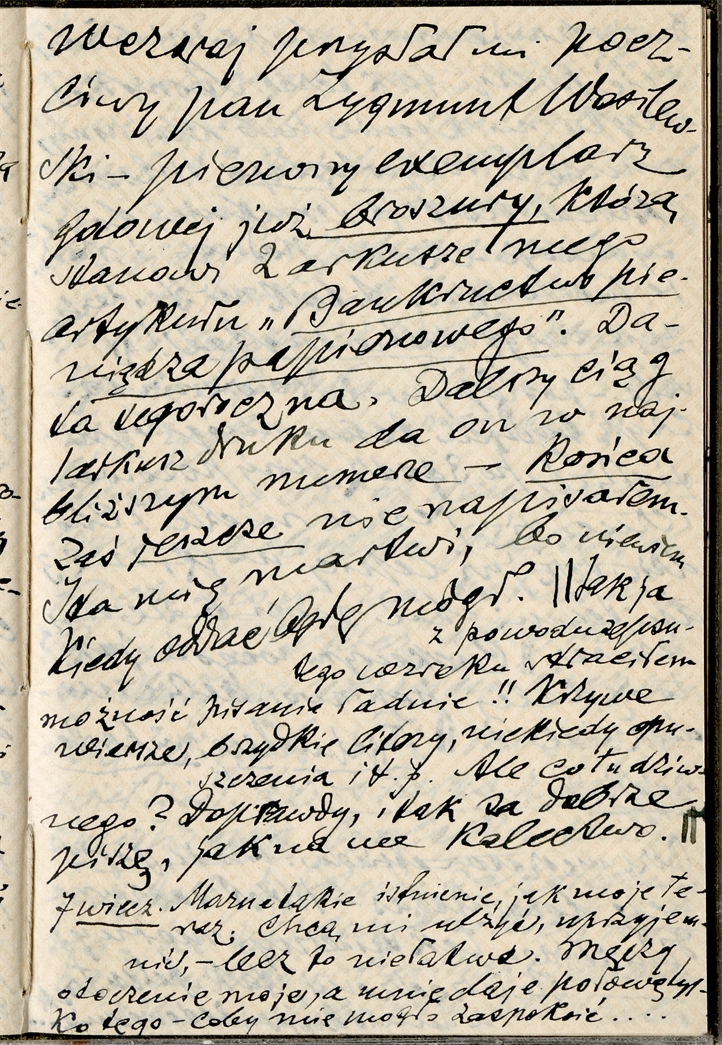 Wczoraj przysłał mi pocz-
ciwy pan Zygmunt Wasilew-
ski – pierwszy exemplarz
gotowej już broszury, którą
stanowi 2 arkusze mego
artykułu „Bankructwo pie-
niądza papierowego". Da-
ta tegoroczna. Dalszy ciąg
1 arkusz druku da on w naj-
bliższym numerze – Końca
zaś jeszcze nie napisałem.
I ta mię martwi, bo niewiem
kiedy oddać będę mógł. || Jak ja
z powodu zepsu-
tego wzroku straciłem
możność pisania ładnie!! Krzywe
wiersze, brzydkie litery, niekiedy opu-
szczenia i t. p. Ale co tu dziw-
nego? Doprawdy, i tak za dobrze
piszę, jak na me kalectwo. ||
7 wiecz. Marne takie istnienie, jak moje te-
raz. Chcą mi ulżyć, uprzyjem-
nić, – lecz to niełatwe. Męczy
otoczenie moje, a mnie daje połowę tyl-
ko tego – coby mię mogło zaspokoić....